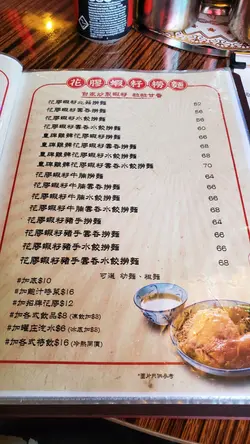 花膠蝦籽撈麵
花膠蝦籽雲吞撈麵 56
花膠蝦籽水餃撈麵 56
花膠蝦籽雲吞水餃撈麵 60
皇牌雞髀花膠蝦籽撈麵 66
皇牌雞髀花膠蝦籽雲吞撈麵 68
皇牌雞髀花膠蝦籽水餃撈麵 68
皇牌雞髀花膠蝦籽雲吞水餃撈麵 70
花膠蝦籽牛腩撈麵 64
花膠蝦籽牛腩雲吞撈麵 66
花膠蝦籽牛腩水餃撈麵 66
花膠蝦籽牛腩雲吞水餃撈麵 68
花膠蝦籽豬手撈麵 64
花膠蝦籽豬手雲吞撈麵 66
花膠蝦籽豬手水餃撈麵 66
花膠蝦籽豬手雲吞水餃撈麵 68
可選 幼麵、粗麵
#加底$10
#加鮑汁時菜$16
#加招牌花膠$12
#加各式飲品$8 (凍飲加$3)
#加罐庄汽水$6 (冰底加$3)
#加各式特飲$16 (冷熱同價)
*圖片只供參考